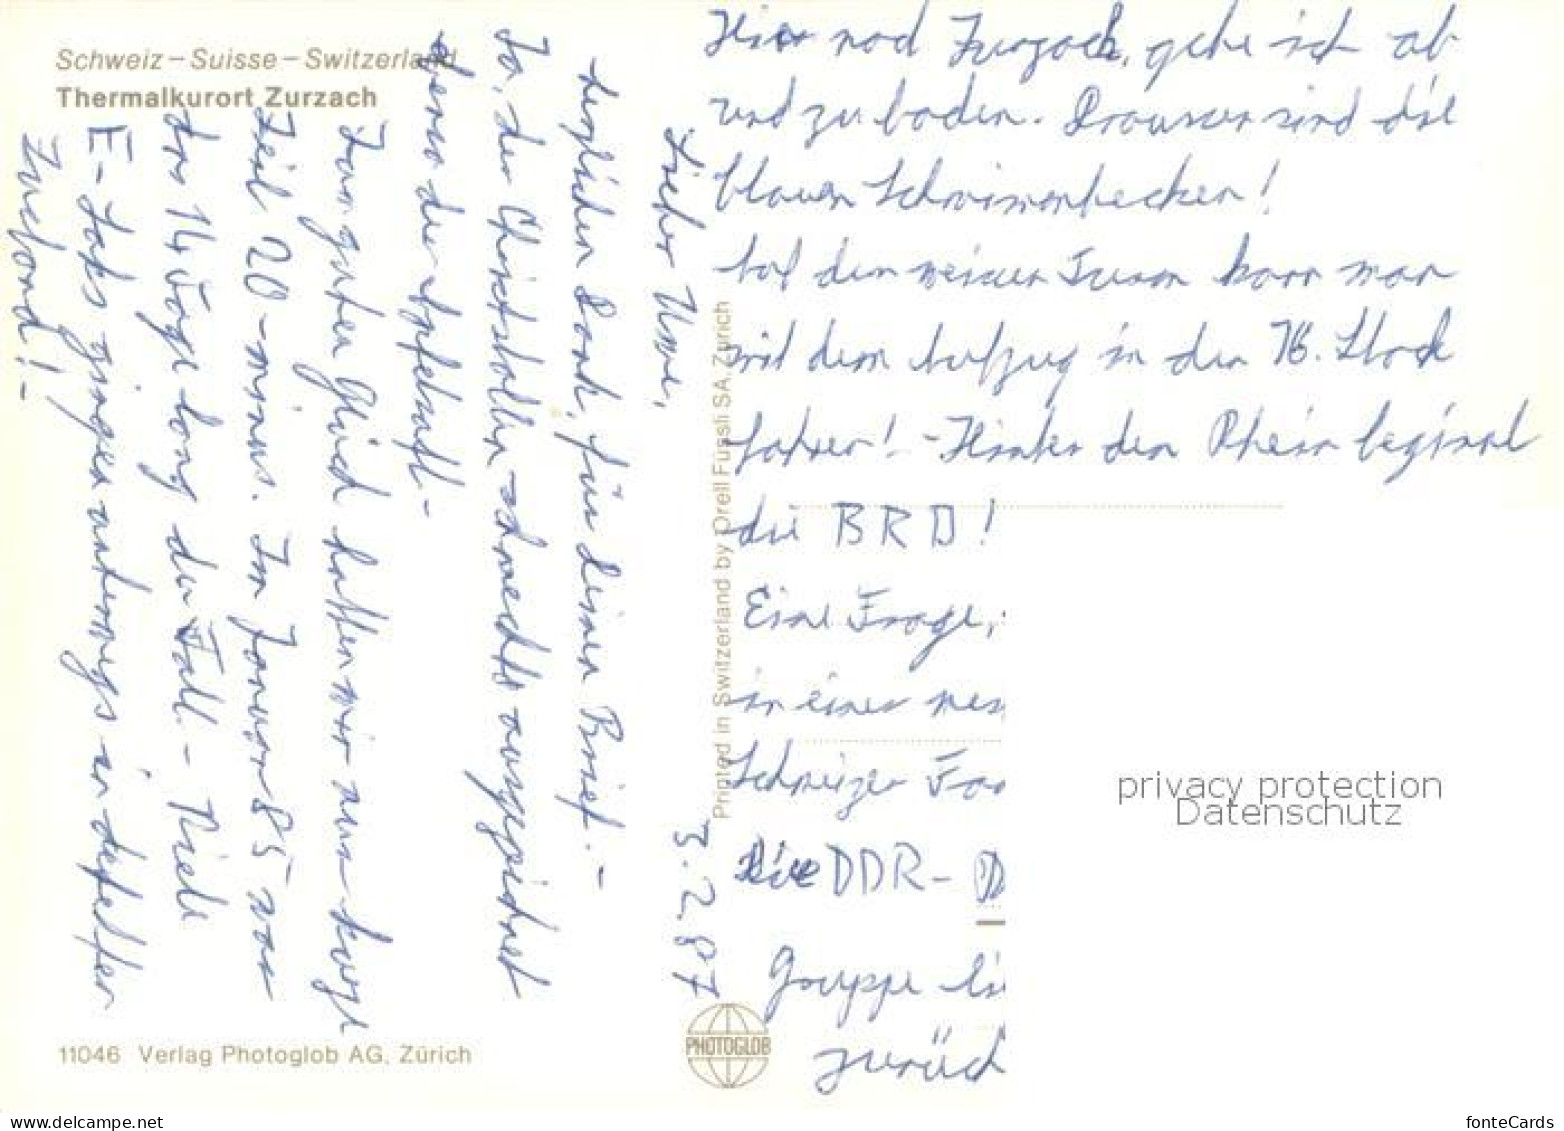 Schweiz – Suisse – Switzerland
Thermalkurort Zurzach
3.2.87
Lieber Uwe,
herzlichen Dank, für deinen Brief.–
Ja, der Christstollen schmeckte ausgezeichnet
ebenso die Apfelsaft–
Zum guten Glück hatten wir nur kurze
Zeil 20-minus. Im Januar 85 war
das 14 Tage lang der Fall.– Viele
E-Loks gingen unterwegs in defekten
Zustand!–
Hier nach Zurzach, gehe ich ab
und zu baden. Draussen sind die
blauen Schwimmbecken!
Auf den weissen Turm kann man
mit dem Aufzug in den 16. Stock
fahren! – Hinter dem Rhein beginnt
die BRD!
Eine Frage,
in einer
Schweizer
Die DDR–
Gruppe
zurück
Printed in Switzerland by Orell Füssli SA Zürich
PHOTOGLOB
11046 Verlag Photoglob AG, Zürich
privacy protection
Datenschutz
www.delcampe.net
fonteCards